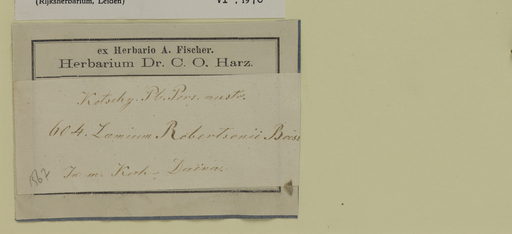 (Rijksherbarium, Leiden)
ex Herbario A. Fischer.
Herbarium Dr. C. O. Harz.
Kotschy. Pl. Pers. austr.
604. Lamium Robertsonii Boiss
In m. Kuh-Daëna.